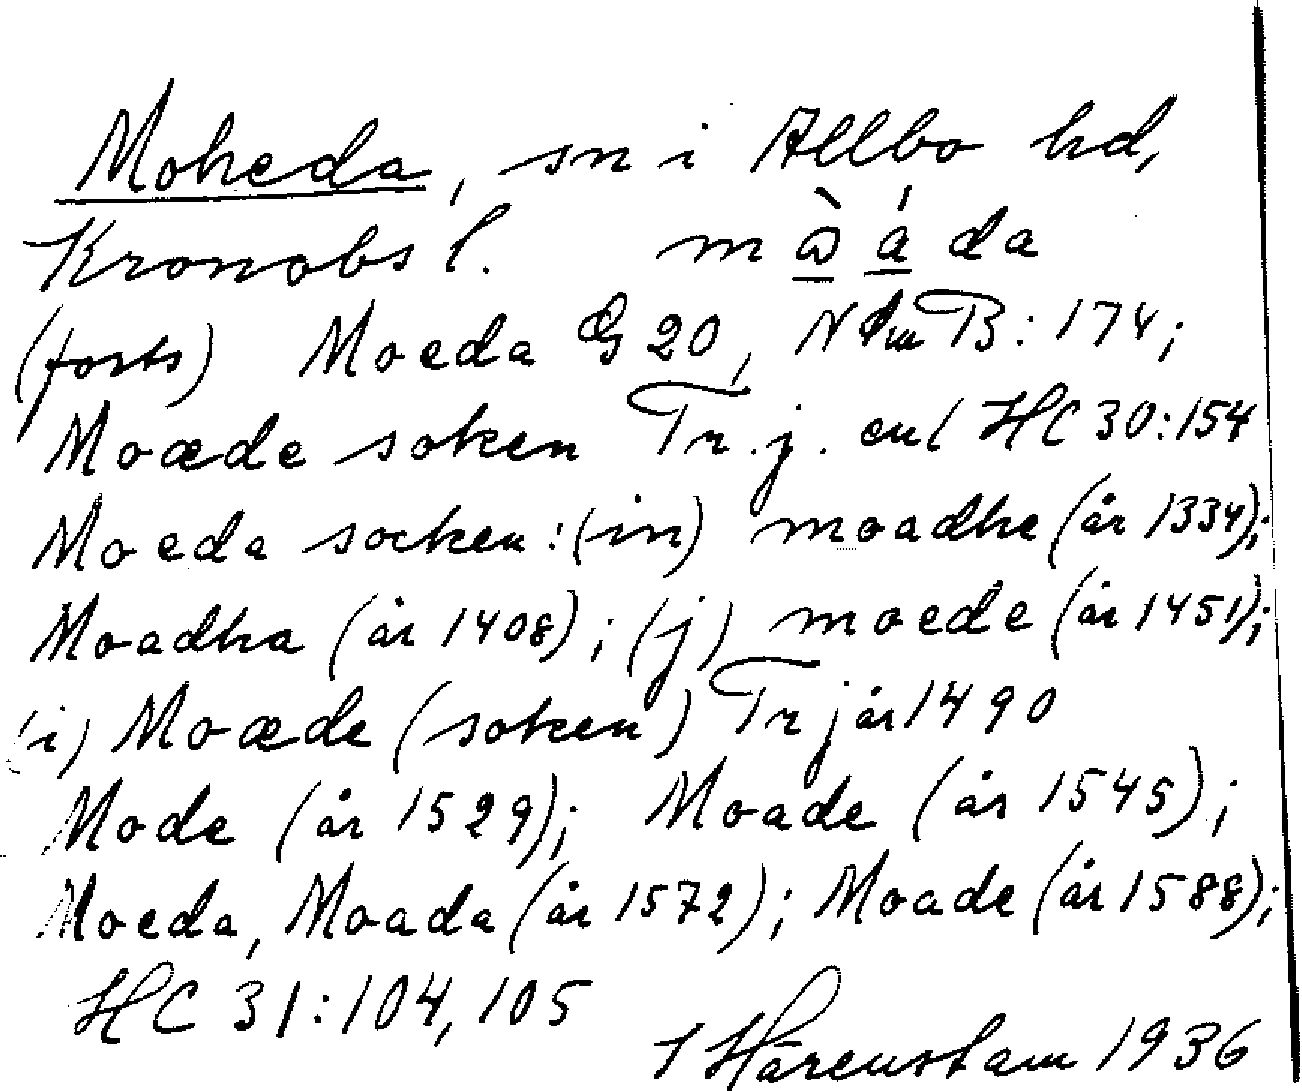 Moheda, sn i Allbo hd,
Kronobs l. mòáda
(forts) Moeda G 20, NdmB: 174;
Moæde soken Tr. j. enl HC 30:154
Moeda socken: (in) moadhe (år 1334);
Moadha (år 1408); (j) moede (år 1451);
(i) Moæde (soken) Tr j år 1490
Mode (år 1529); Moade (år 1545);
Moeda, Moada (år 1572); Moade (år 1588);
HC 31:104, 105
I Hårenstam 1936